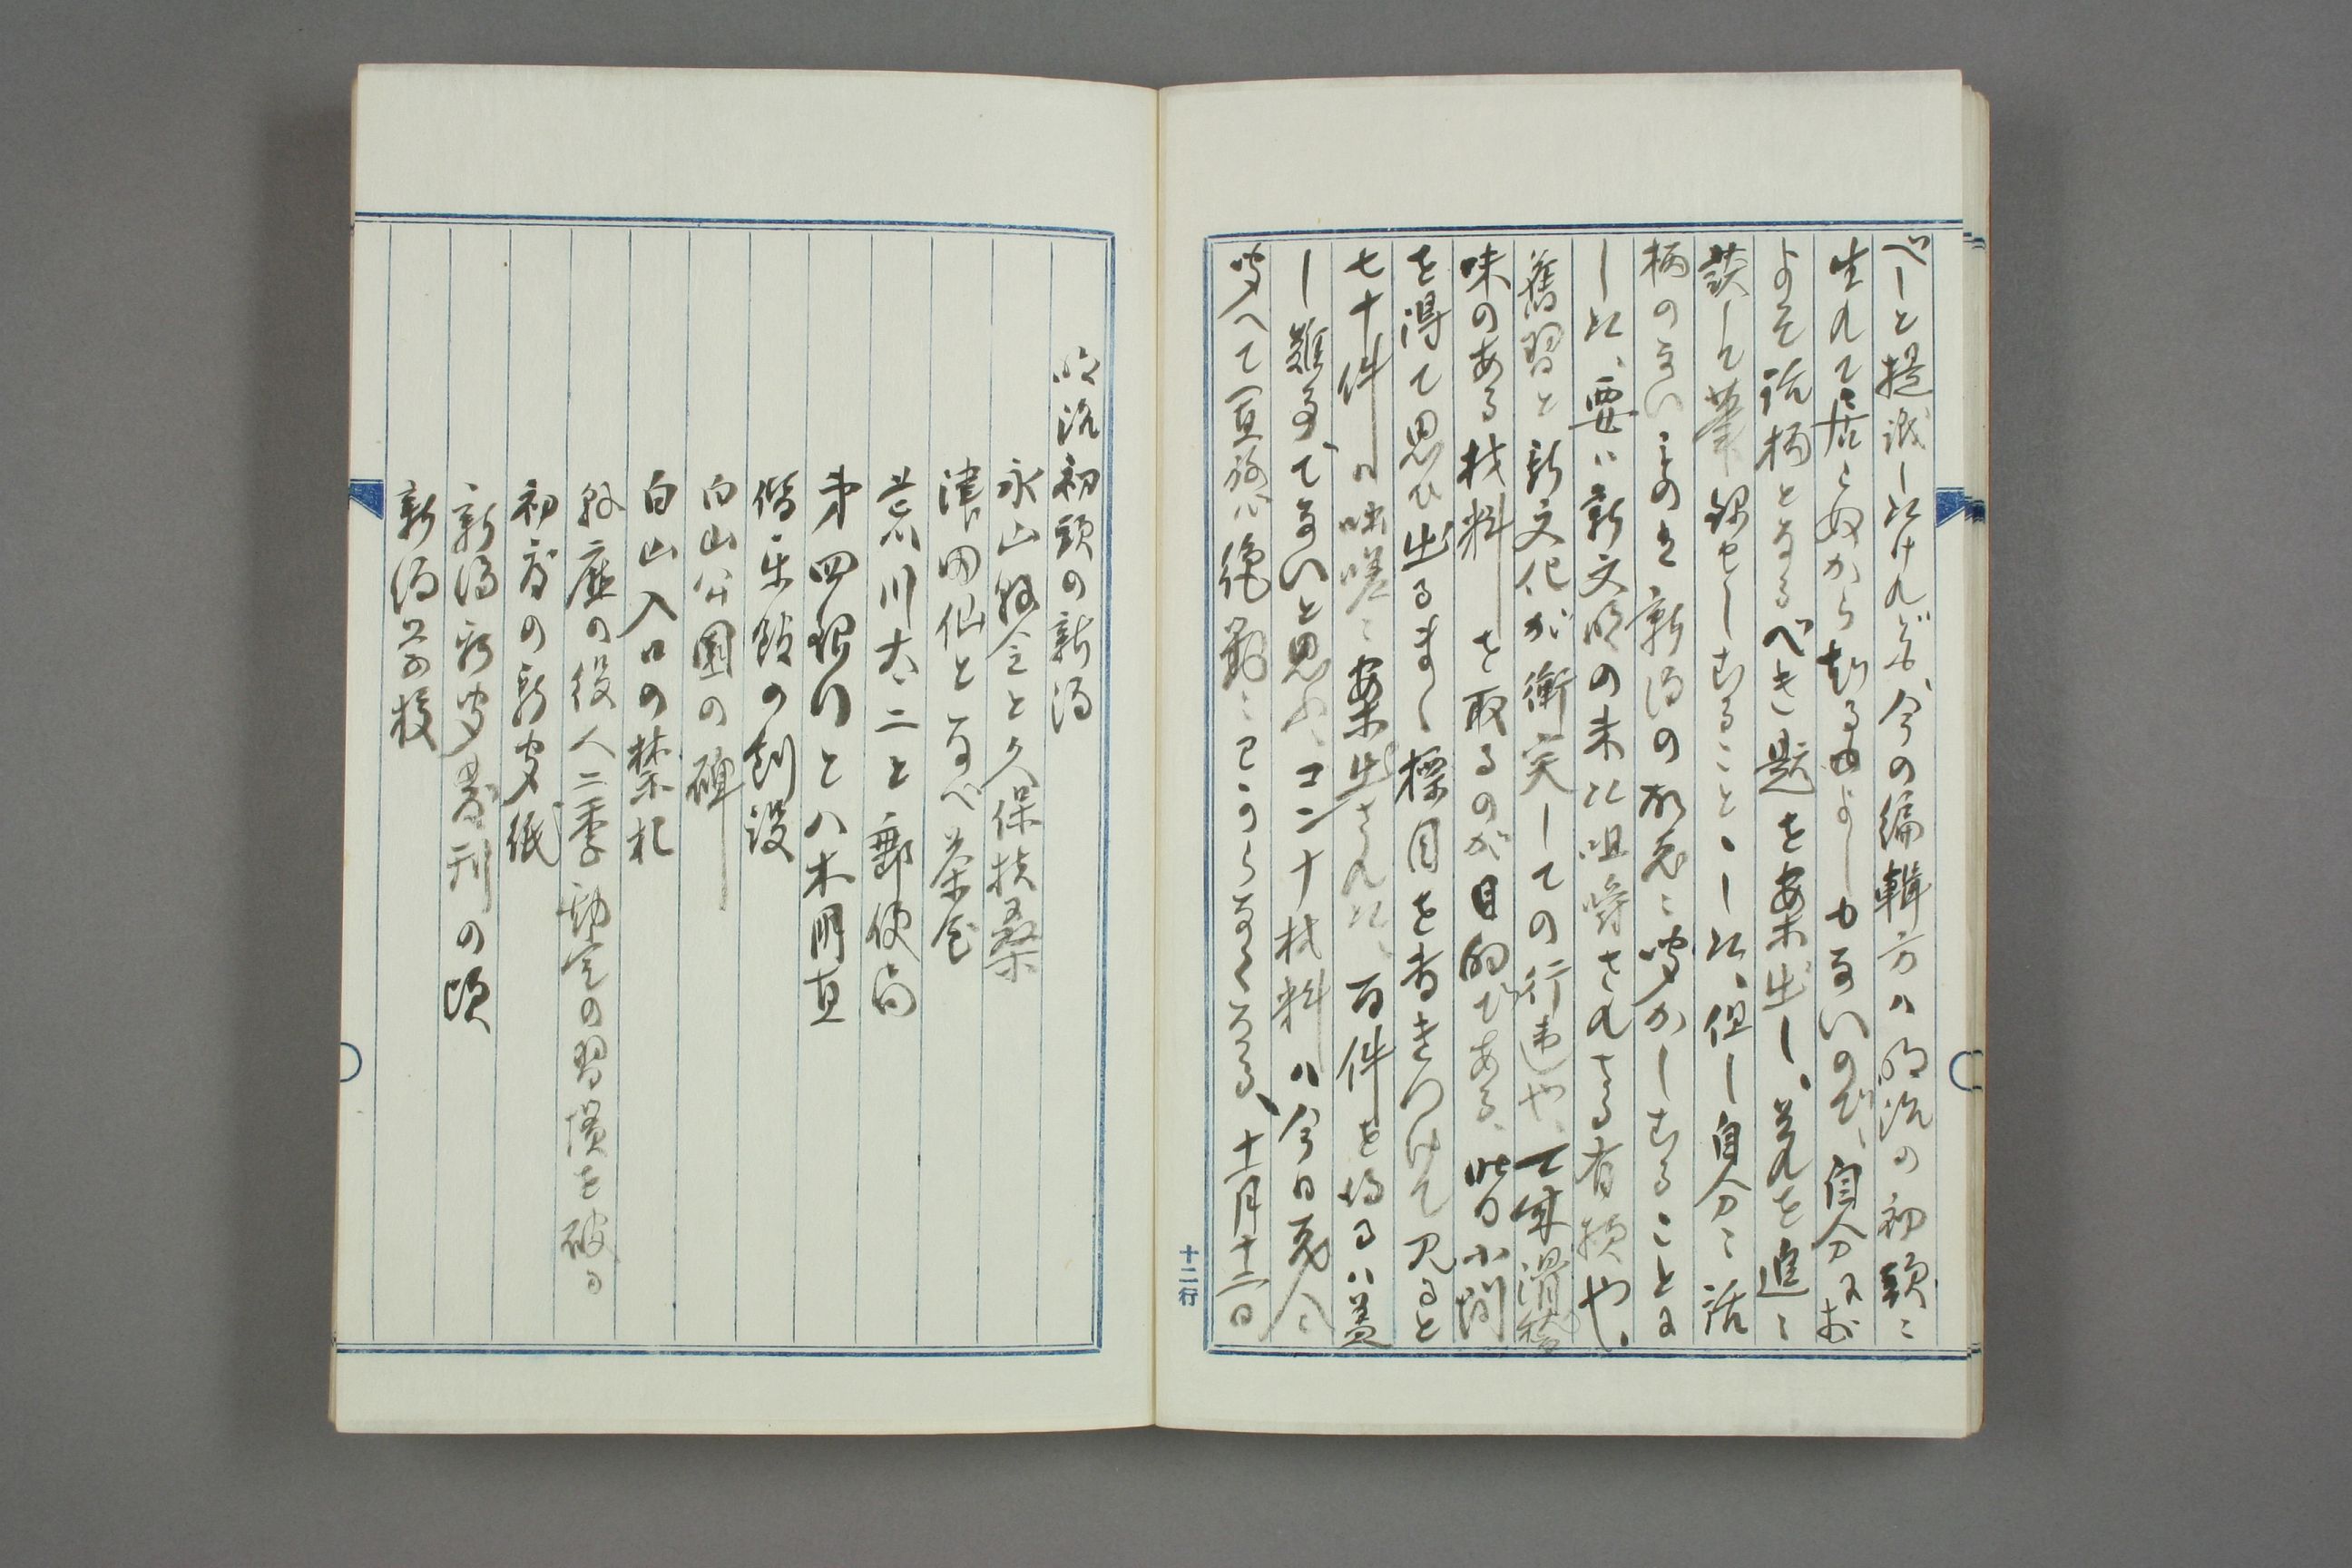 べしと提議したけれども、今の編輯方ハ明治の初頭に
生れて居らぬから知る由よしもないので、自分におよそ
話柄となるべき題を案出し、若しくハ之を追て
談して筆録せしむることとした、但し自分に話
柄のないものを新潟の故老に聞かしむることに
した、要ハ新文明の未た咀嚼されざる有様や、
舊習と新文化が衝突しての行違や、一種滑稽
味のある材料を取るのが目的である、昨日小閑
を得て思ひ出るまゝ標目を書きつけて見ると
七十件ハ咄嗟に案出された、百件を得るハ蓋
し難事でないと思ふ、コンナ材料ハ今日老人に
聞いて置ねば絶対にわからなくなる、十一月十二日
明治初頭の新潟
永山縣令と久保扶桑
津田仙となべ茶屋
荒川太二と郵便局
第四銀行と八木朋直
偕楽館の創設
白山公園の碑
白山入口の禁札
縣廰の役人二季勘定の習慣を破る
初度の新聞紙
新潟新聞発刊の頃
新潟学校
十二行